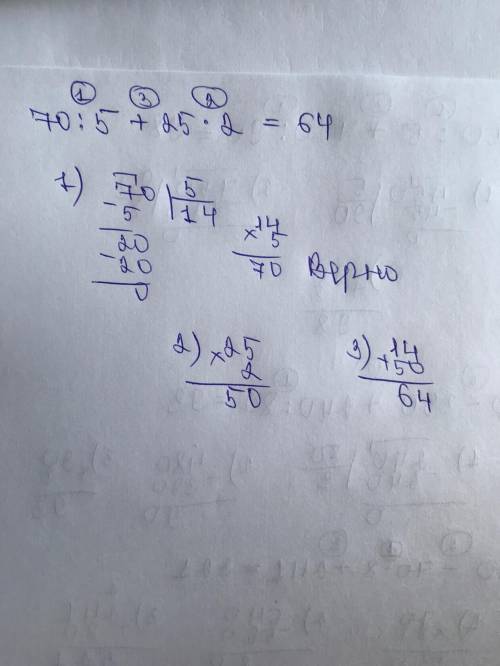 ① ③ ②
70 : 5 + 25 · 2 = 64
1) 70 | 5
- 5 | 14
20
- 20
0
× 14
5
70 Верно
2) × 25
2
50
3) + 14
50
64